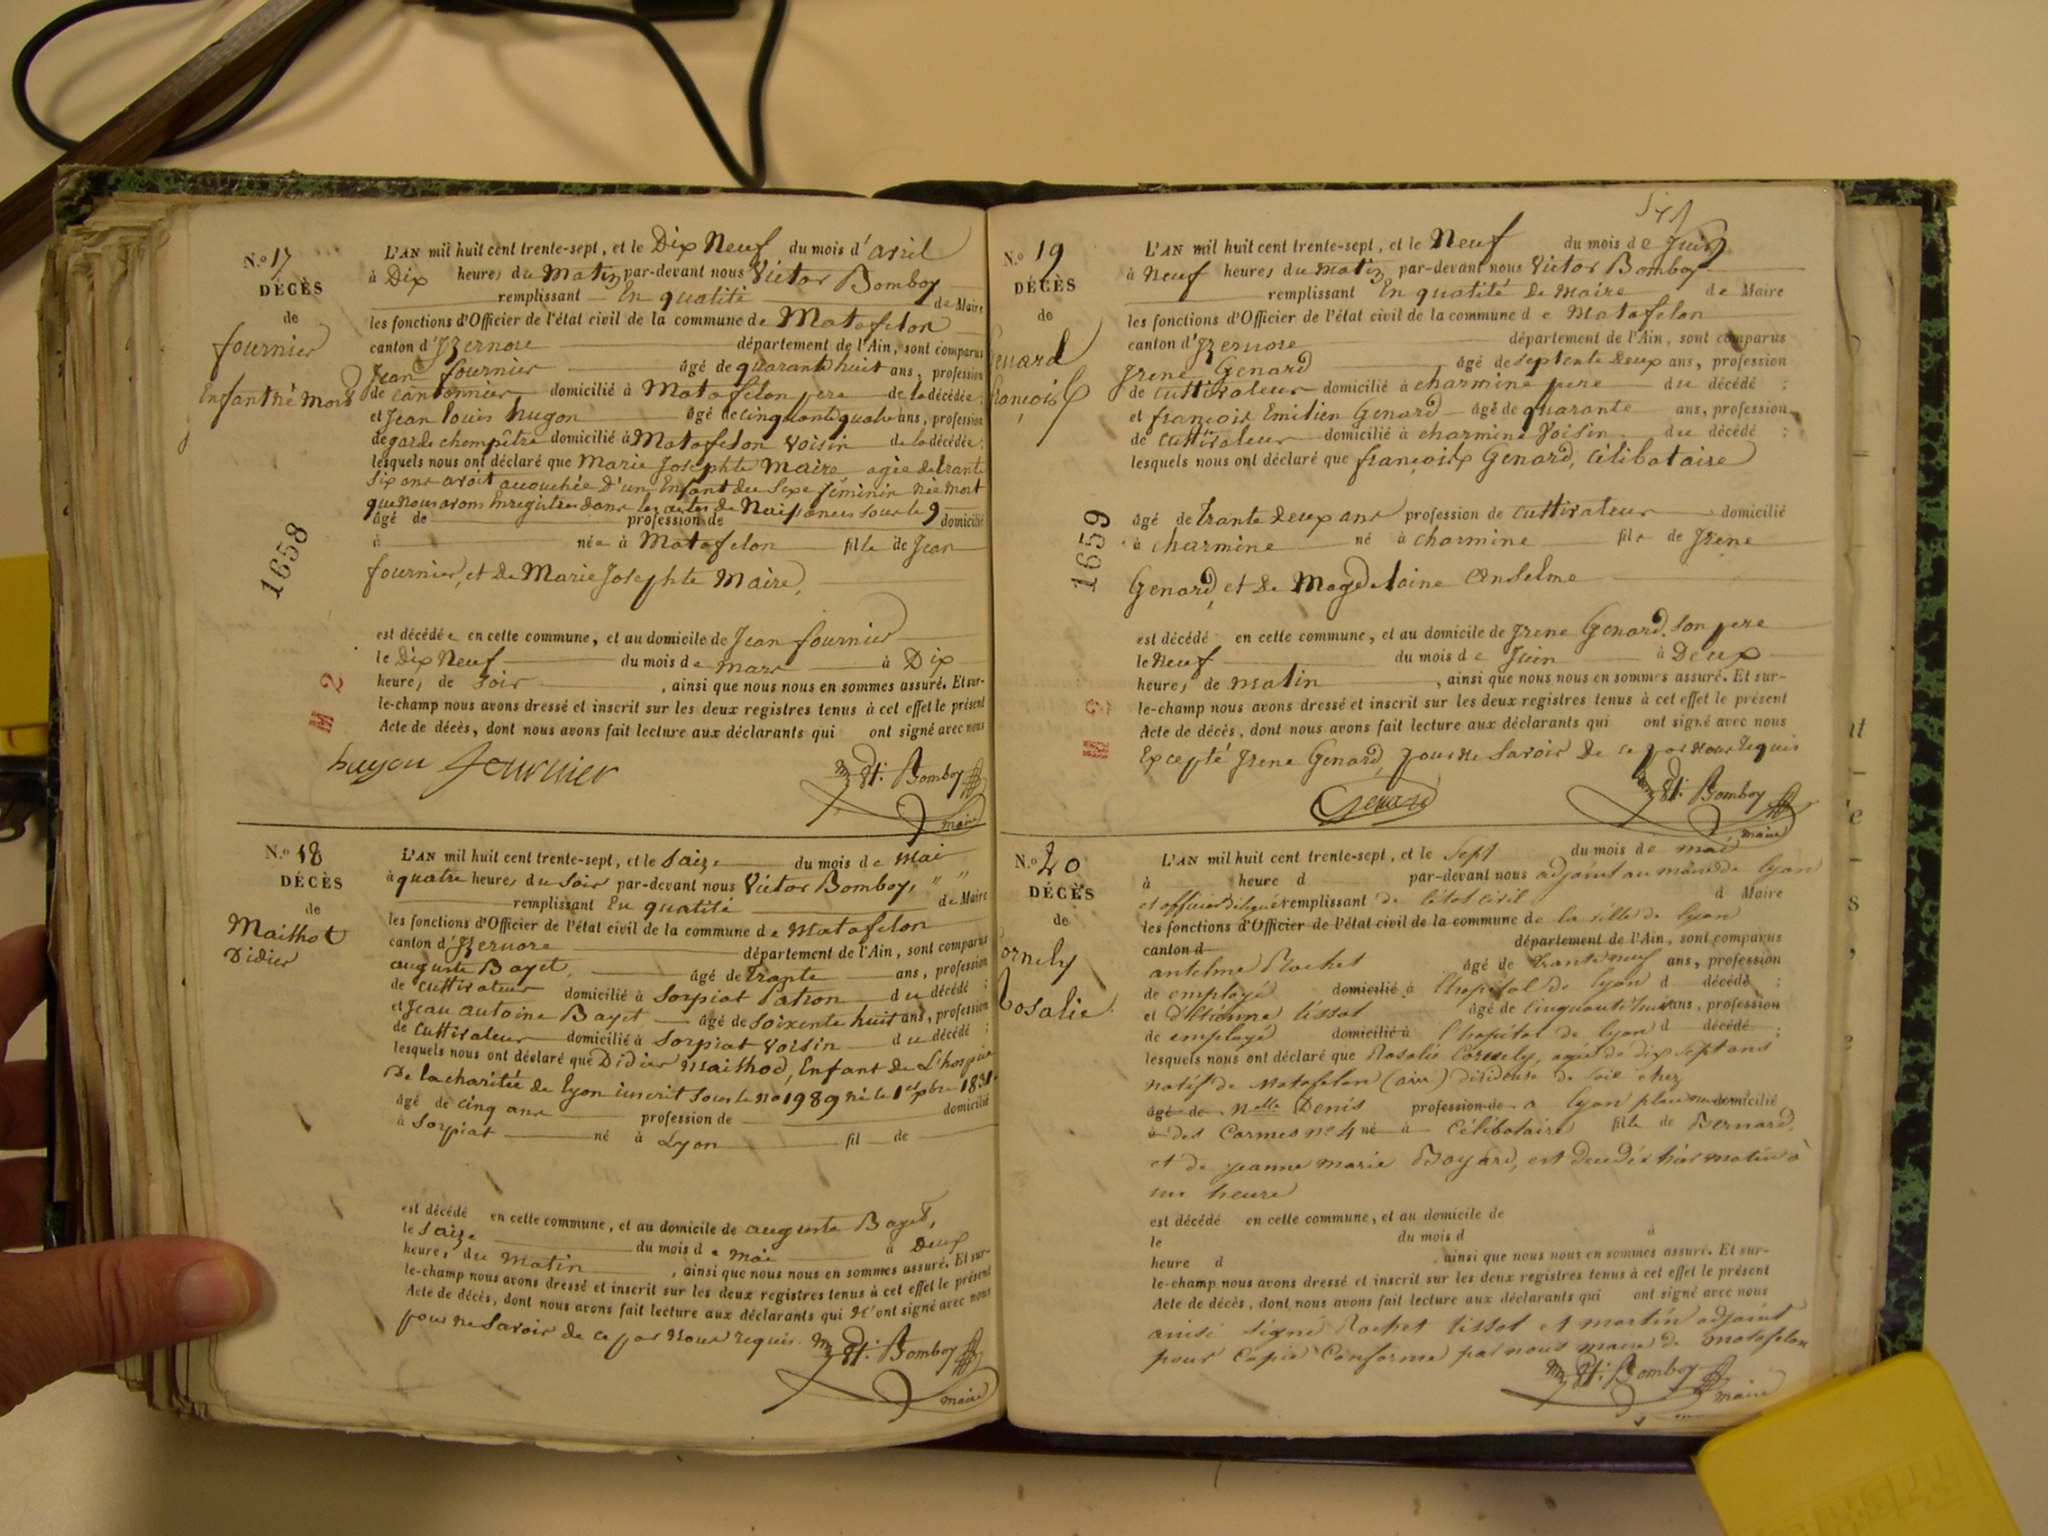 N.o 17
DÉCÈS
de
fournier
Enfant né mort
L'AN mil huit cent trente-sept, et le Dix Neuf du mois d'avril
à Dix heures du Matin par-devant nous Victor Bomboy
remplissant En qualité de Maire
les fonctions d'Officier de l'état civil de la commune de Matafelon
canton d'Izernore département de l'Ain, sont comparus
Jean fournier âgé de quarante huit ans, profession
de cantonnier domicilié à Matafelon pere de la décédée;
et Jean louis hugon âgé de cinquante quatre ans, profession
de garde chempêtre domicilié à Matafelon voisin de la décédée;
lesquels nous ont déclaré que Marie Josephte Maire agée de trante
six ans avoit accouchée D'un Enfant du Sexe féminin née mort
que nous avons Enregistres dans les actes de Naissances sous le 9
âgé de profession de domicilié
à née à Matafelon fille de Jean
fournier, et De Marie Josephte Maire,
est décédée en cette commune, et au domicile de Jean fournier
le Dix Neuf du mois de mars à Dix
heures de soir, ainsi que nous nous en sommes assuré. Et sur-
le-champ nous avons dressé et inscrit sur les deux registres tenus à cet effet le présent
Acte de décès, dont nous avons fait lecture aux déclarants qui ont signé avec nous
hugon fournier Bomboy
maire
1658
M 2
N.o 18
DÉCÈS
de
Maithot
Didier
L'AN mil huit cent trente-sept, et le Saize du mois de Mai
à quatre heures du Soir par-devant nous Victor Bomboy, " "
remplissant En qualité de Maire
les fonctions d'Officier de l'état civil de la commune de Matafelon
canton d'Izernore département de l'Ain, sont comparus
auguste Bayet, âgé de trante ans, profession
de cuttivateur domicilié à Sorpiat Patron du décédé;
et Jean antoine Bayet âgé de soixente huit ans, profession
de cuttivateur domicilié à Sorpiat voisin du décédé;
lesquels nous ont déclaré que Didier Maithod, Enfant de L'hospice
De la charitée de Lyon inscrit sous le no 1989 né le 1er xbre 1831.
âgé de cinq ans profession de domicilié
à Sorpiat né à Lyon fil de
est décédé en cette commune, et au domicile de auguste Bayet,
le Saize du mois de Mai à Deux
heures du Matin, ainsi que nous nous en sommes assuré. Et sur-
le-champ nous avons dressé et inscrit sur les deux registres tenus à cet effet le présent
Acte de décès, dont nous avons fait lecture aux déclarants qui N'ont signé avec nous
pour ne Savoir de ce par Nous requis. Bomboy
maire
N.o 19
DÉCÈS
de
Genard
françois
L'AN mil huit cent trente-sept, et le Neuf du mois de Juin
à Neuf heures du matin par-devant nous Victor Bomboy
remplissant En qualité de maire de Maire
les fonctions d'Officier de l'état civil de la commune de Matafelon
canton d'Izernore département de l'Ain, sont comparus
Irene Genard âgé de septente Deux ans, profession
de cuttivateur domicilié à charmine pere du décédé;
et françois Emilien Genard âgé de quarante ans, profession
de cuttivateur domicilié à charmine Voisin du décédé;
lesquels nous ont déclaré que françois Genard, Célibataire
âgé de trante Deux ans profession de cuttivateur domicilié
à charmine né à charmine fils de Irene
Genard, et De Magdelaine Anselme
est décédé en cette commune, et au domicile de Irene Genard, Son pere
le Neuf du mois de Juin à Deux
heures de matin, ainsi que nous nous en sommes assuré. Et sur-
le-champ nous avons dressé et inscrit sur les deux registres tenus à cet effet le présent
Acte de décès, dont nous avons fait lecture aux déclarants qui ont signé avec nous
Excepté Irene Genard, pour ne Savoir De ce par nous requis
Genard Bomboy
maire
1659
N.o 20
DÉCÈS
de
Cornely
Rosalie
L'AN mil huit cent trente-sept, et le Sept du mois de mai
à heure d par-devant nous adjoint au maire de lyon
et officier délégué remplissant de l'état civil d Maire
les fonctions d'Officier de l'état civil de la commune de la ville de lyon
canton d département de l'Ain, sont comparus
antelme Rochet âgé de trante neuf ans, profession
de employé domicilié à l'hopital de lyon d décédé;
et d'Etienne tissot âgé de cinquante huit ans, profession
de employé domicilié à l'hopital de lyon d décédé;
lesquels nous ont déclaré que Rosalie Cornely, agée de dix sept ans
natif de Matafelon (ain) dévideuse de soie chez
âgé de Nelle Denis profession de a lyon place domicilié
à des Carmes no 4 né à Célibataire fille de Bernard,
et de jeanne marie Boyard, est decedée hier matin à
une heure
est décédé en cette commune, et au domicile de
le du mois d à
heure d, ainsi que nous nous en sommes assuré. Et sur-
le-champ nous avons dressé et inscrit sur les deux registres tenus à cet effet le présent
Acte de décès, dont nous avons fait lecture aux déclarants qui ont signé avec nous
ainsi signé Rochet tissot et martin adjoint
pour Copie Conforme par nous maire de matafelon
Bomboy
maire